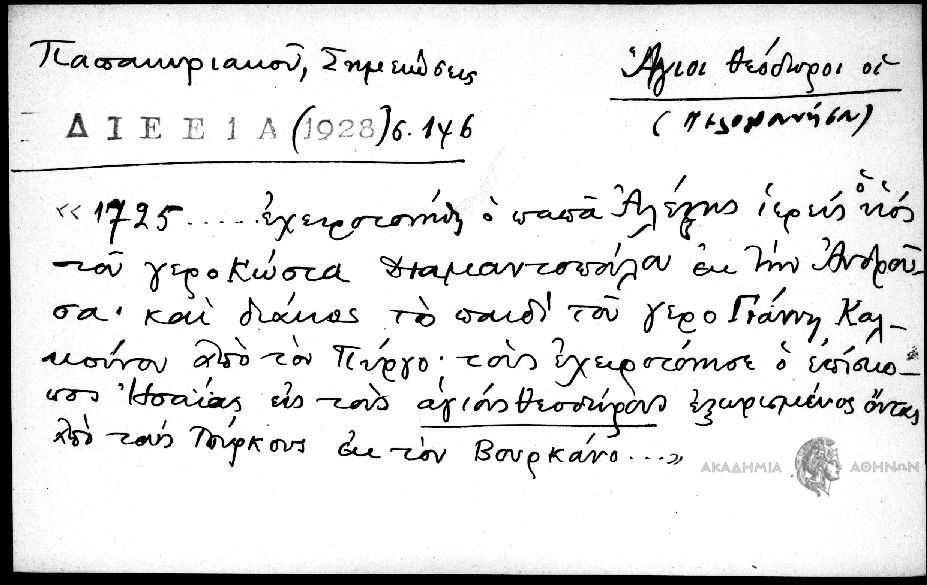 Παπακυριακοῦ, Σημειώσεις
Ἅγιοι Θεόδωροι οἱ
ΔΙΕΕ 1Α (1928) σ. 146
(Πελοπόννησον)
«1725 ..... ἐχειροτονήθη ὁ παπᾶ Ἀλέξης ἱερεύς ὁ ὑιός
τοῦ γερο Κώστα Διαμαντοπούλου ἐκ τὴν Ἀνδροῦ-
σα· καὶ διάκος τὸ παιδί τοῦ γερο Γιάννη Καλ-
κούνου ἀπὸ τὸν Πύργο· τοὺς ἐχειροτόνησε ὁ ἐπίσκο-
πος Ἡσαΐας εἰς τοὺς ἁγίους Θεοδώρους ἐξωρισμένος ὄντας
ἀπὸ τούς Τούρκους ἐκ τὸν Βουρκάνο ...»
ΑΚΑΔΗΜΙΑ ΑΘΗΝΩΝ